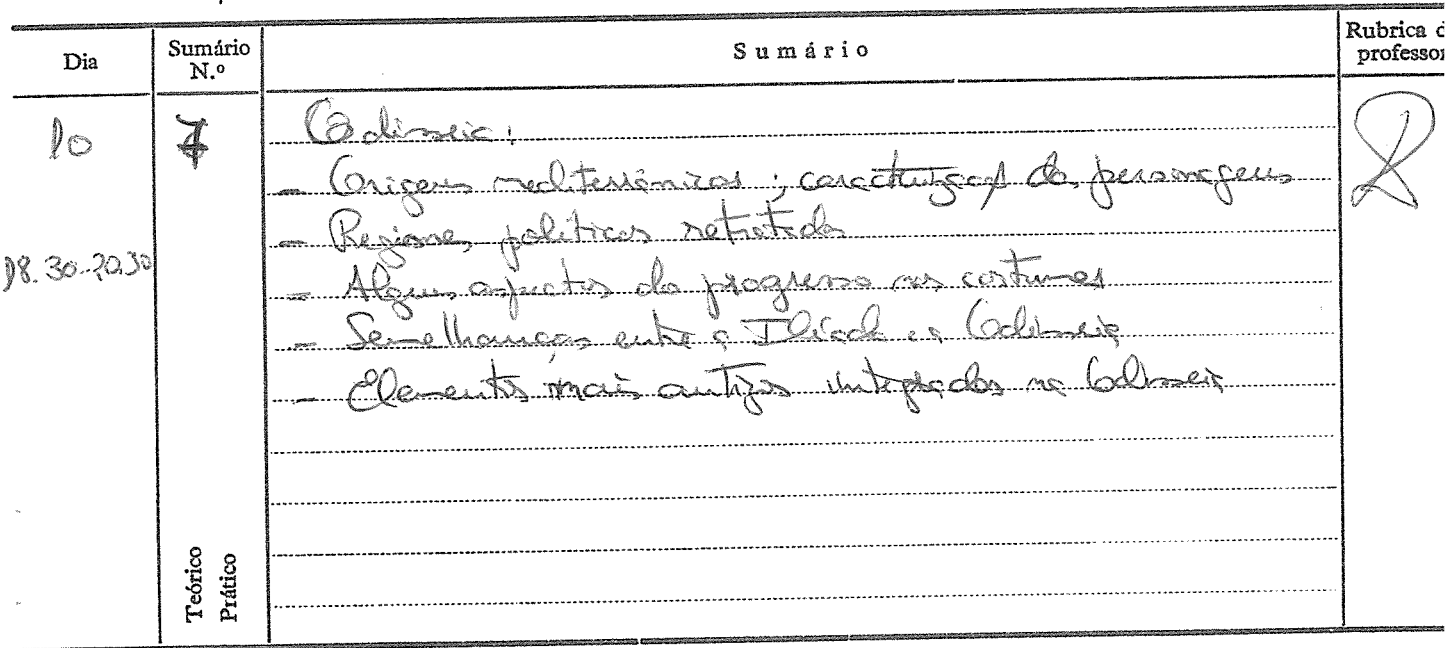 Dia
Sumário N.º
Sumário
Rubrica d
professor
10
7
Odisseia:
- Origens mediterrânicas; caracterização das personagens
- Regimes políticos retratados
18.30-20.30
- Alguns aspectos do progresso nos costumes
- Semelhanças entre a Ilíada e a Odisseia
- Elementos mais antigos integrados na Odisseia
Teórico
Prático